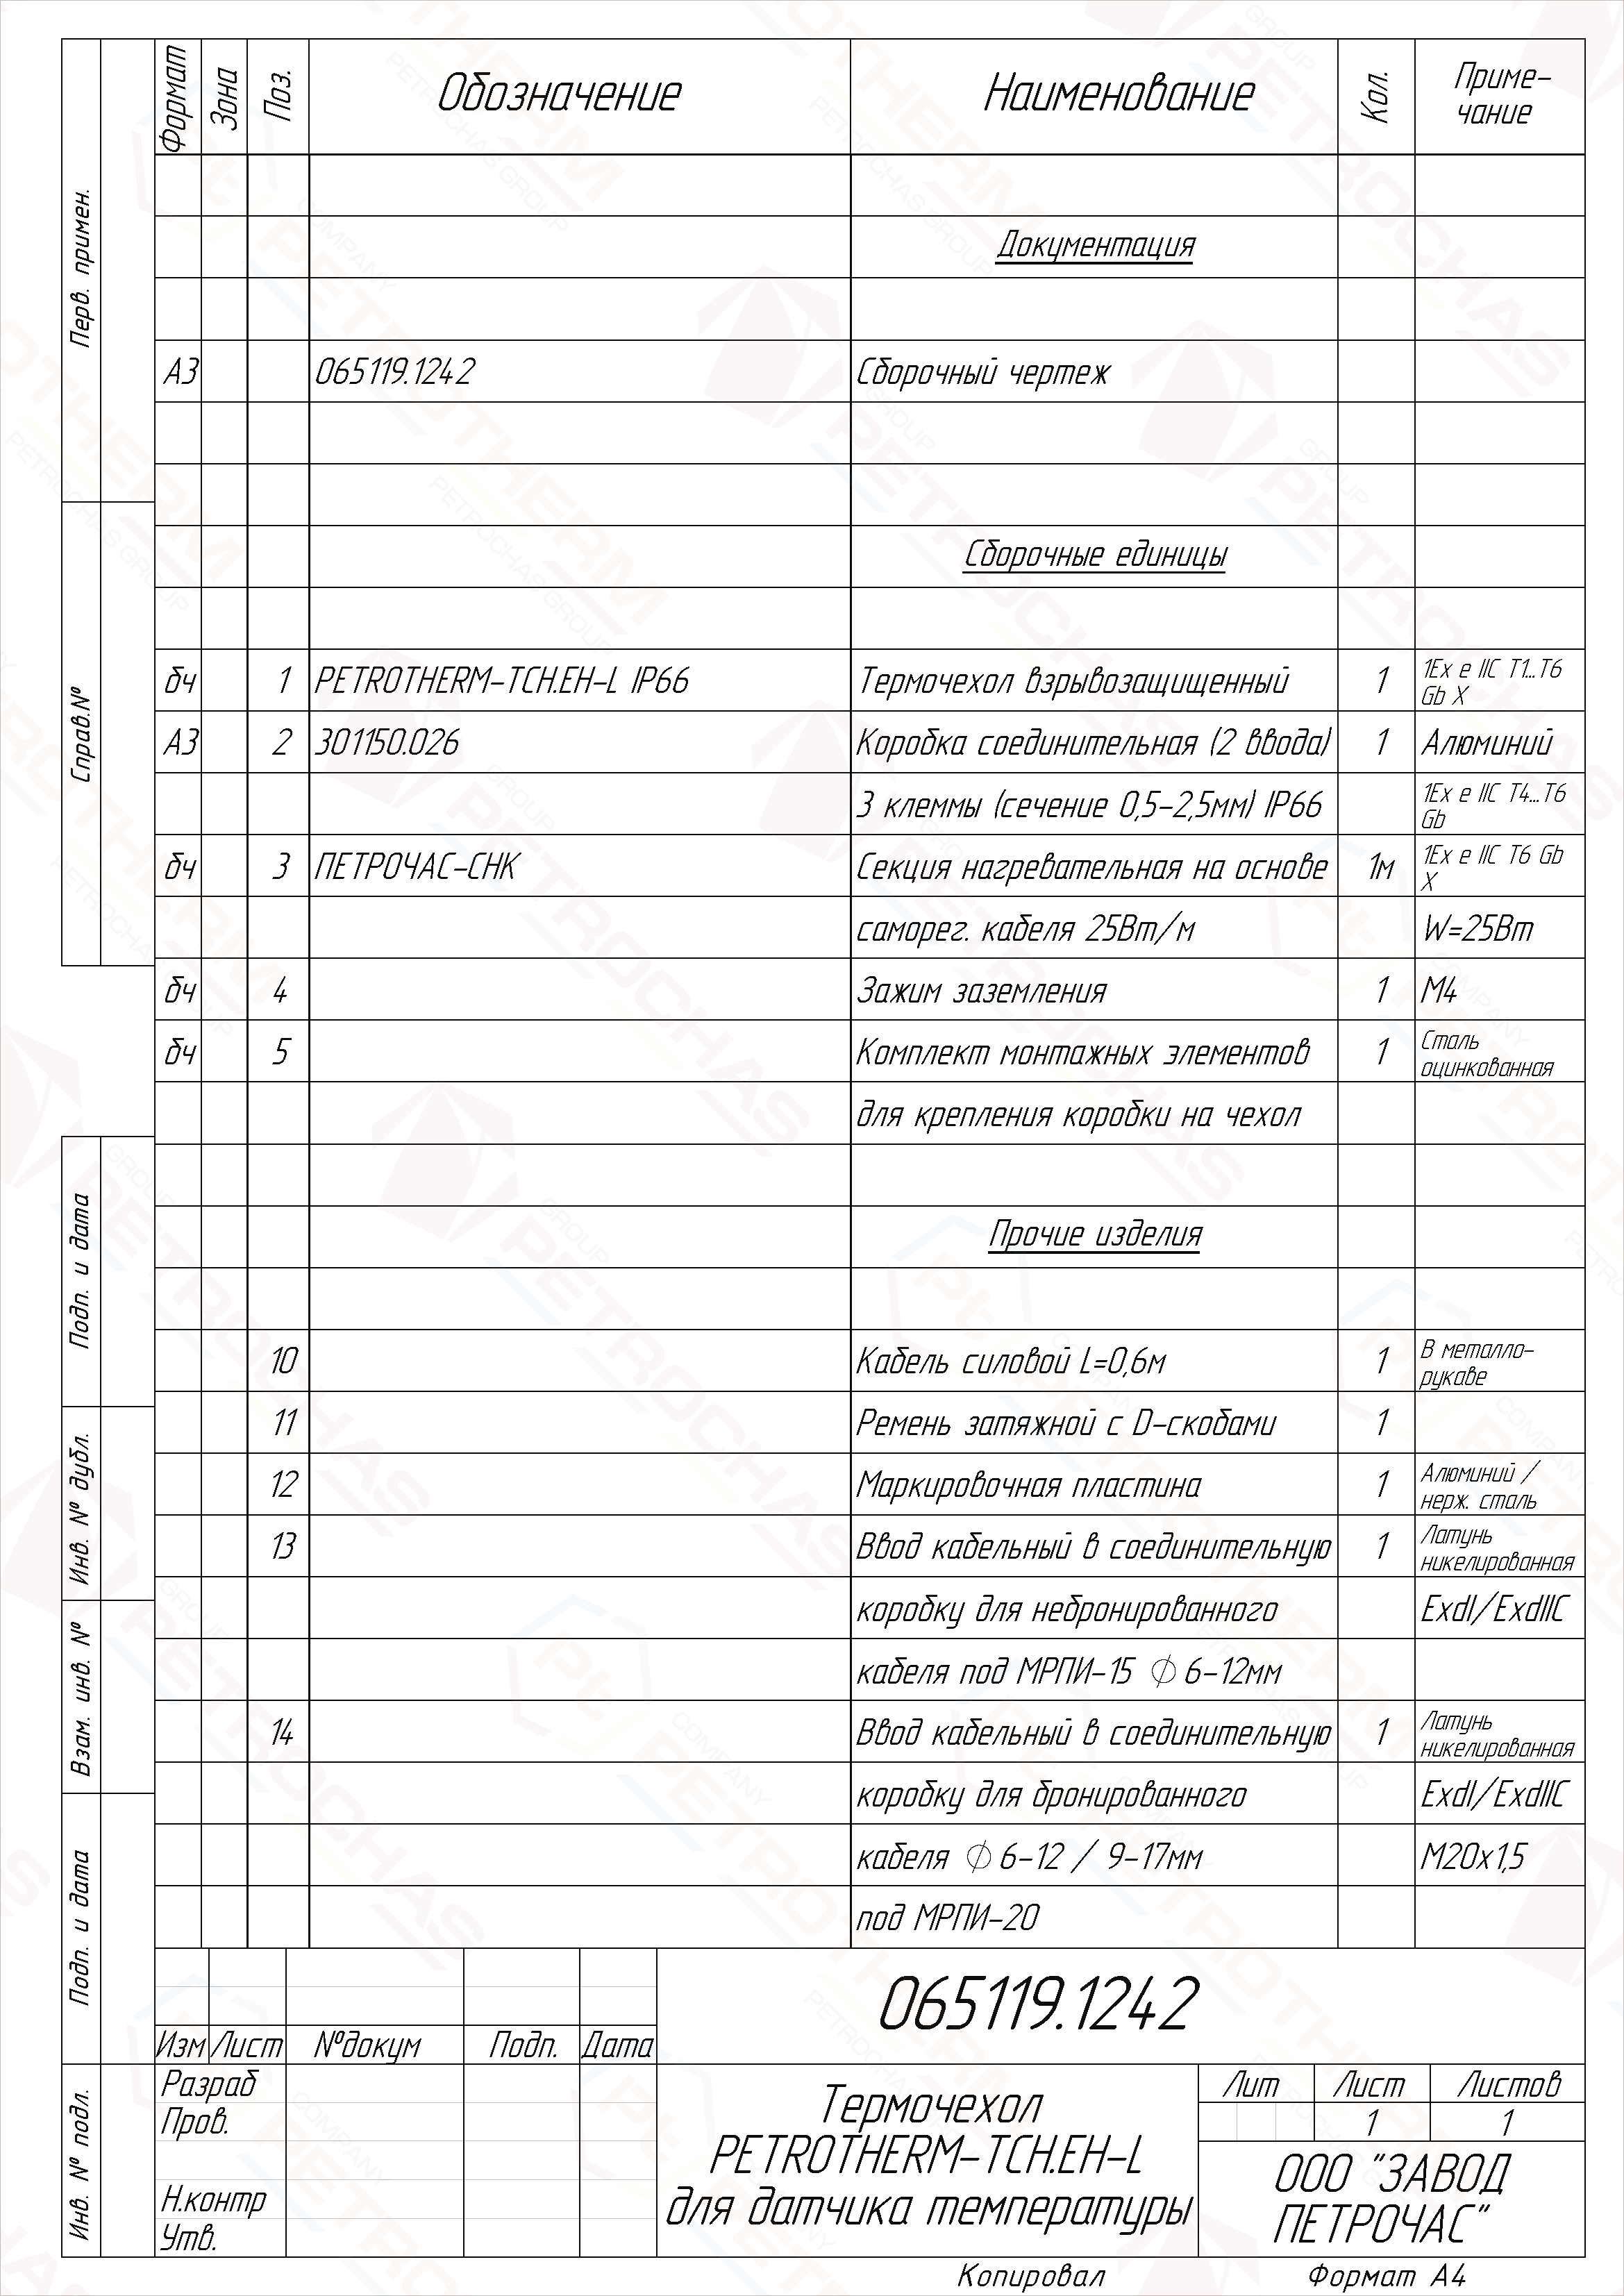 Формат Зона Поз. Обозначение Наименование Кол. Приме-
чание
Документация
А3 065119.1242 Сборочный чертеж
Сборочные единицы
бч 1 PETROTHERM-TCH.EH-L IP66 Термочехол взрывозащищенный 1 1Ex e IIC T1...T6
Gb X
А3 2 301150.026 Коробка соединительная (2 ввода) 1 Алюминий
3 клеммы (сечение 0,5-2,5мм) IP66 1Ex e IIC T4...T6
Gb
бч 3 ПЕТРОЧАС-СНК Секция нагревательная на основе 1м 1Ex e IIC T6 Gb
X
саморег. кабеля 25Вт/м W=25Вт
бч 4 Зажим заземления 1 М4
бч 5 Комплект монтажных элементов 1 Сталь
оцинкованная
для крепления коробки на чехол
Прочие изделия
10 Кабель силовой L=0,6м 1 В металло-
рукаве
11 Ремень затяжной с D-скобами 1
12 Маркировочная пластина 1 Алюминий /
нерж. сталь
13 Ввод кабельный в соединительную 1 Латунь
никелированная
коробку для небронированного ExdI/ExdIIC
кабеля под МРПИ-15 ∅ 6-12мм
14 Ввод кабельный в соединительную 1 Латунь
никелированная
коробку для бронированного ExdI/ExdIIC
кабеля ∅ 6-12 / 9-17мм М20х1,5
под МРПИ-20
Перв. примен.
Справ.№
Подп. и дата
Инв. № дубл.
Взам. инв. №
Подп. и дата
Инв. № подл.
065119.1242
Изм Лист №докум Подп. Дата
Разраб
Пров.
Н.контр
Утв.
Термочехол
PETROTHERM-TCH.EH-L
для датчика температуры
Лит Лист Листов
1 1
ООО "ЗАВОД
ПЕТРОЧАС"
Копировал Формат А4